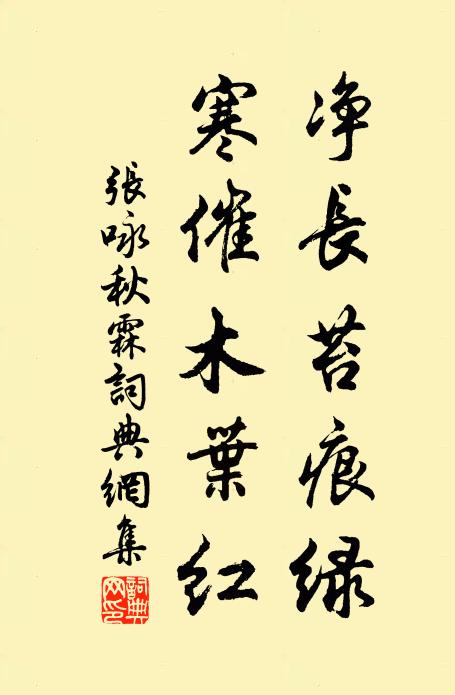 净長苔痕緑
寒催木葉紅
張咏秋霖詞典網集
詞典网印